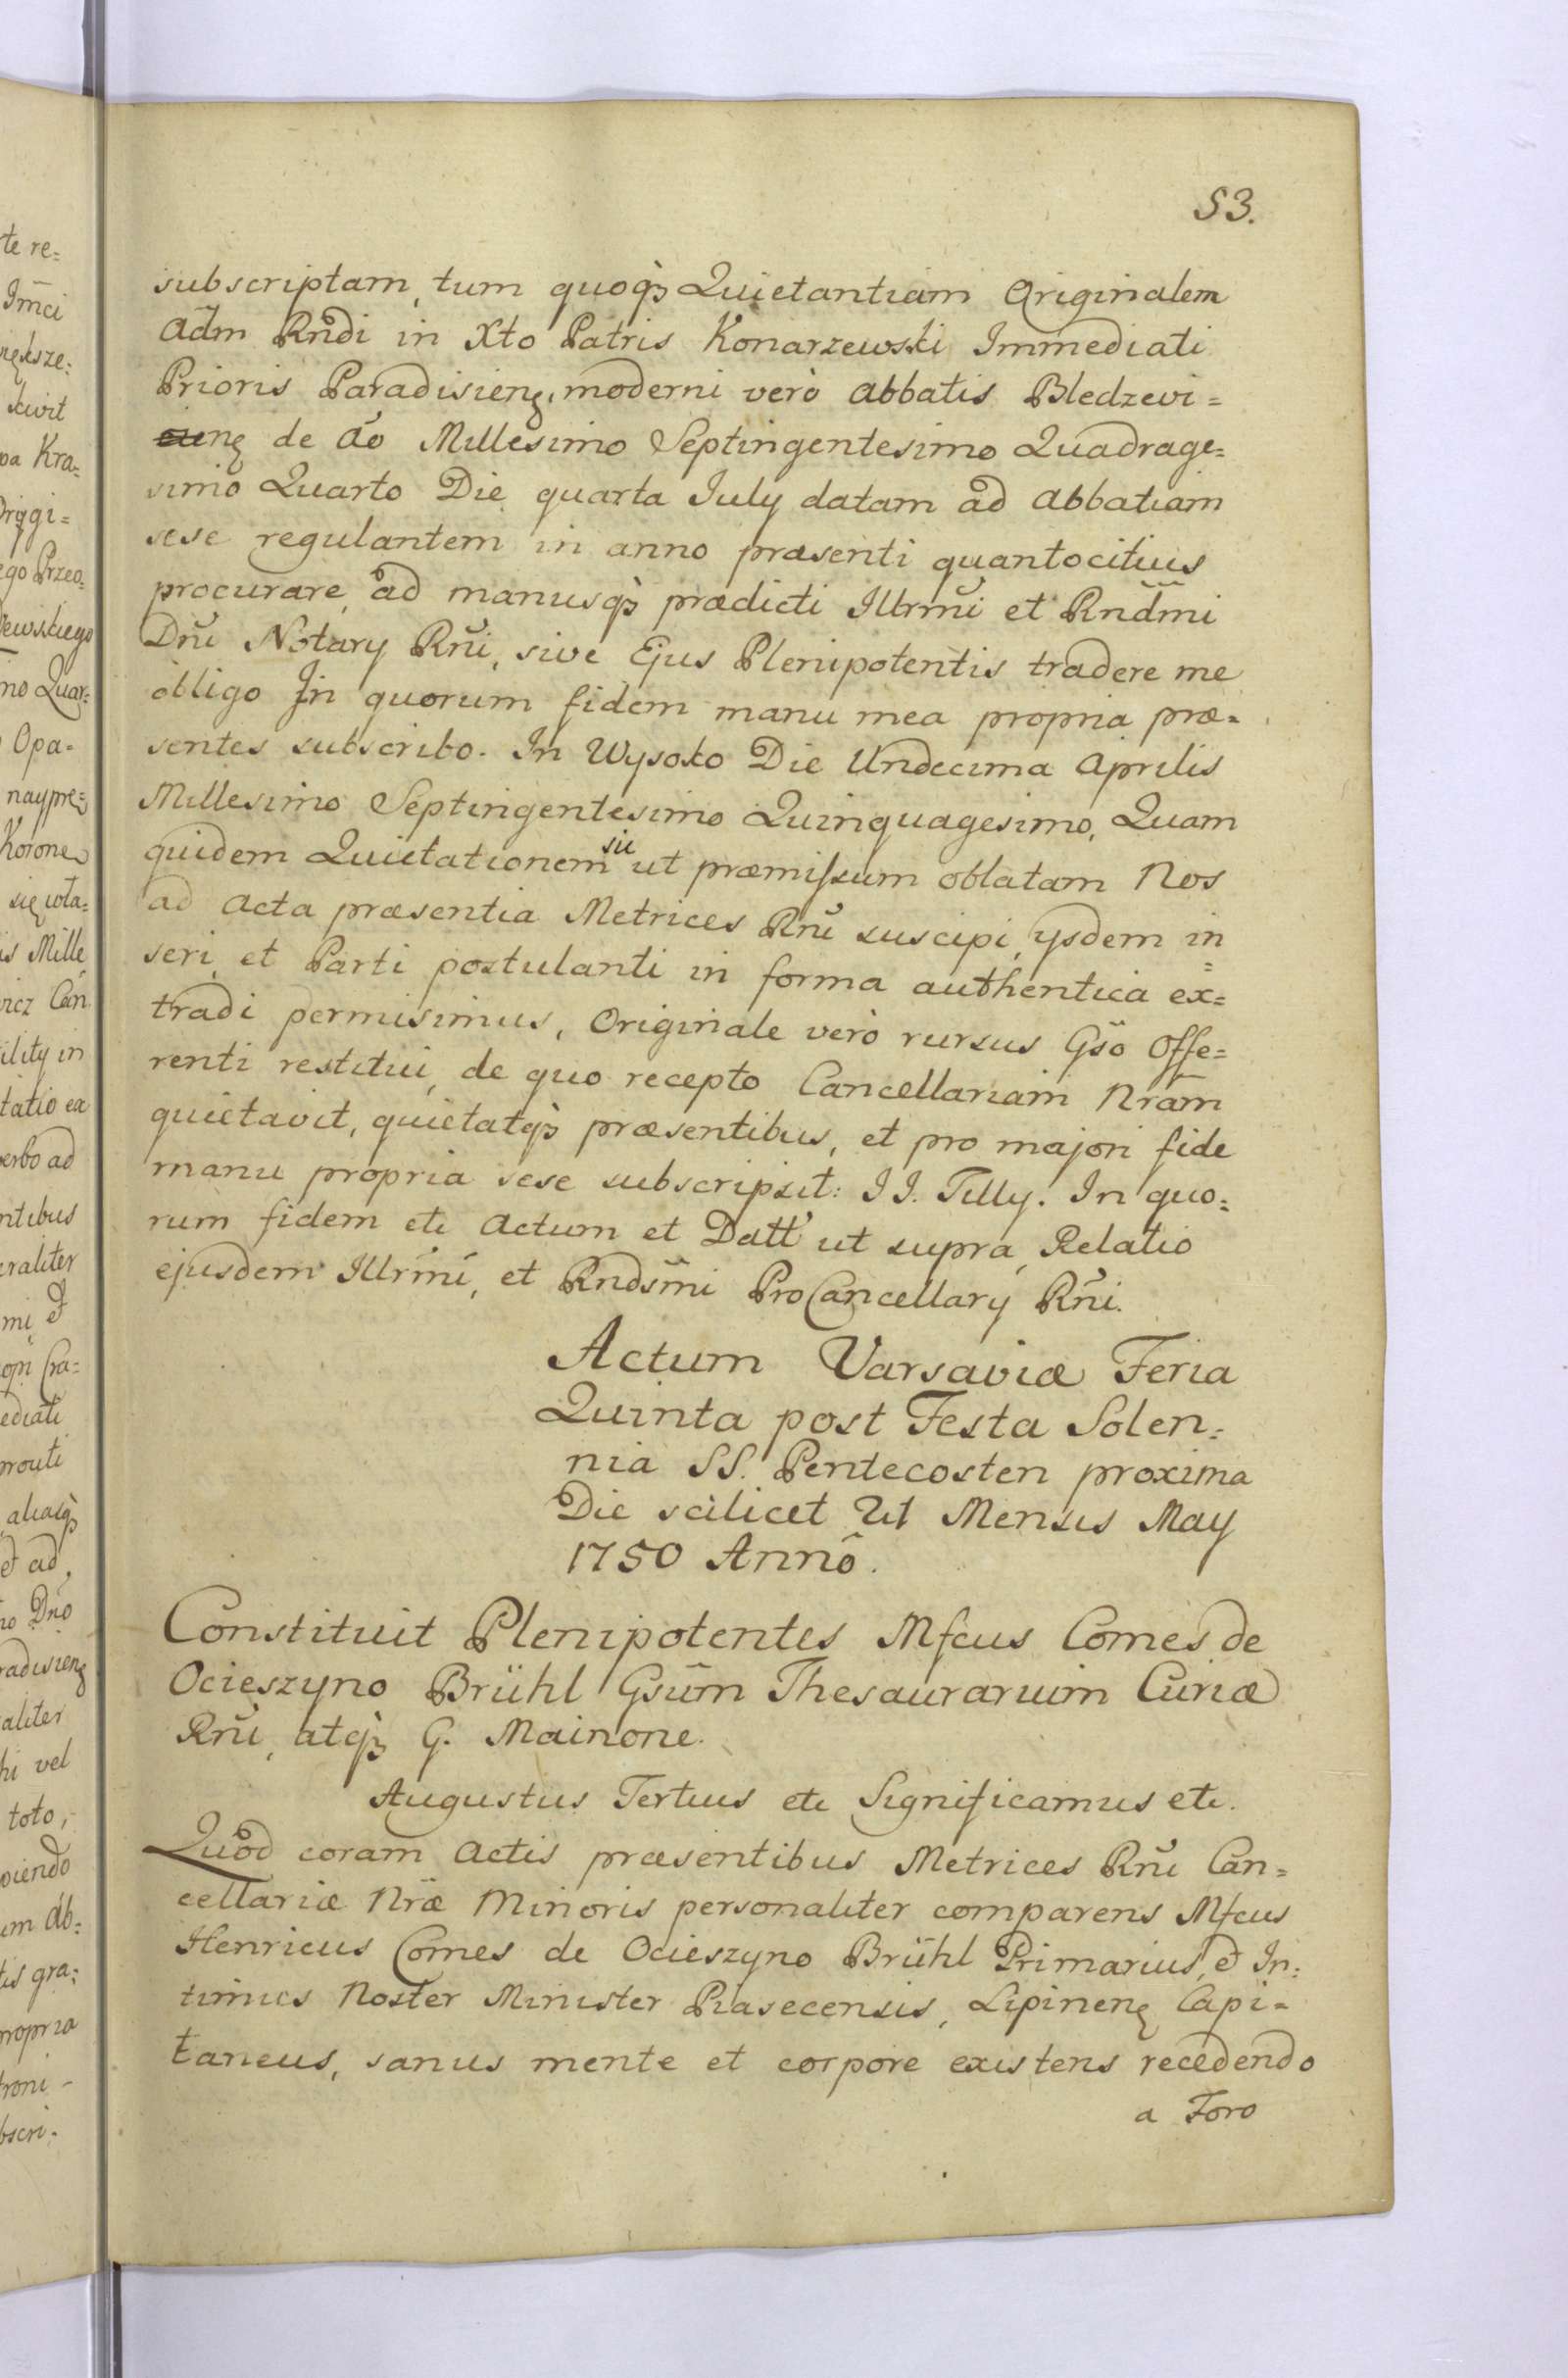 53.
subscriptam, tum quoqꝫ Quietantiam Originalem
Adm Rndi in Xto Patris Konarzewski Immediati
Prioris Paradisienꝫ, moderni verò Abbatis Bledzevi=
enꝫ de Ao Millesimo Septingentesimo Quadrage=
simo Quarto Die quarta July datam ad Abbatiam
sese regulantem in anno præsenti quantocitius
procurare, ad manusqꝫ prædicti Illrmi et Rndmi
Dni Notary Rni, sive Ejus Plenipotentis tradere me
obligo In quorum fidem manu mea propria præ=
sentes subscribo. In Wysoko Die Undecima Aprilis
Millesimo Septingentesimo Quinquagesimo, Quam
quidem Quietationem sic ut præmissum oblatam Nos
ad Acta præsentia Metrices Rni suscipi, ysdem in=
seri, et Parti postulanti in forma authentica ex=
tradi permisimus, Originale verò rursus Gso Offe=
renti restitui, de quo recepto Cancellariam Nram
quietavit, quietatqꝫ præsentibus, et pro majori fide
manu propria sese subscripsit: J J. Tilly. In quo=
rum fidem etc Actum et Datt ut supra, Relatio
ejusdem Illrmi, et Rndsmi ProCancellary Rni.
Actum Varsaviæ Feria
Quinta post Festa Solen=
nia SS. Pentecosten proxima
Die scilicet 21 Mensis May
1750 Annô.
Constituit Plenipotentes Mfcus Comes de
Ocieszyno Brühl Gsum Thesaurarium Curiæ
Rni, atqꝫ G. Mainone.
Augustus Tertius etc Significamus etc.
Quod coram Actis præsentibus Metrices Rni Can=
cellariæ Nræ Minoris personaliter comparens Mfcus
Henricus Comes de Ocieszyno Brühl Primarius, et In=
timus Noster Minister Piasecensis, Lipinenꝫ Capi=
taneus, sanus mente et corpore existens recedendo
a Foro